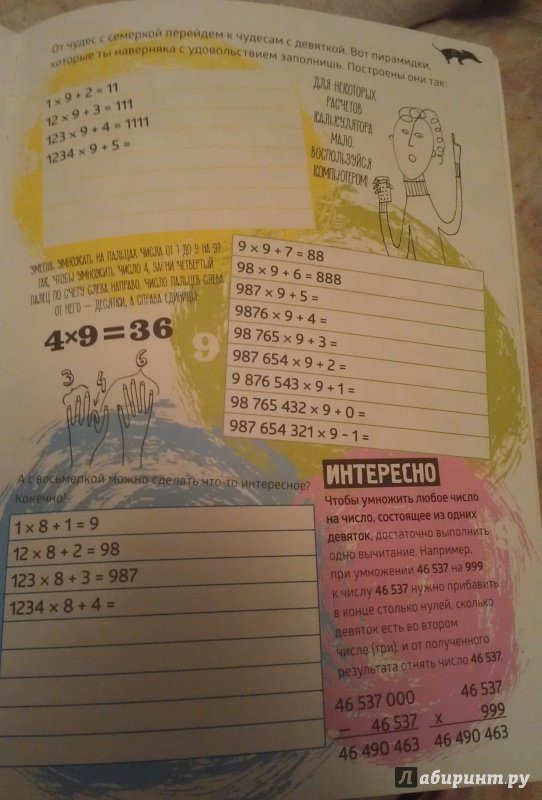 От чудес с семеркой перейдем к чудесам с девяткой. Вот пирамидки,
которые ты наверняка с удовольствием заполнишь. Построены они так:
1 x 9 + 2 = 11
12 x 9 + 3 = 111
123 x 9 + 4 = 1111
1234 x 9 + 5 =
ДЛЯ НЕКОТОРЫХ
РАСЧЕТОВ
КАЛЬКУЛЯТОРА
МАЛО.
ВОСПОЛЬЗУЙСЯ
КОМПЬЮТЕРОМ!
УМЕЕШЬ УМНОЖАТЬ НА ПАЛЬЦАХ ЧИСЛА ОТ 1 ДО 9 НА 9?
ТАК, ЧТОБЫ УМНОЖИТЬ ЧИСЛО 4, ЗАГНИ ЧЕТВЕРТЫЙ
ПАЛЕЦ ПО СЧЕТУ СЛЕВА НАПРАВО. ЧИСЛО ПАЛЬЦЕВ СЛЕВА
ОТ НЕГО — ДЕСЯТКИ, А СПРАВА ЕДИНИЦЫ.
4x9=36
3 4 6
9
9 x 9 + 7 = 88
98 x 9 + 6 = 888
987 x 9 + 5 =
9876 x 9 + 4 =
98 765 x 9 + 3 =
987 654 x 9 + 2 =
9 876 543 x 9 + 1 =
98 765 432 x 9 + 0 =
987 654 321 x 9 - 1 =
А с восьмеркой можно сделать что-то интересное?
Конечно!
1 x 8 + 1 = 9
12 x 8 + 2 = 98
123 x 8 + 3 = 987
1234 x 8 + 4 =
ИНТЕРЕСНО
Чтобы умножить любое число
на число, состоящее из одних
девяток, достаточно выполнить
одно вычитание. Например,
при умножении 46 537 на 999
к числу 46 537 нужно прибавить
в конце столько нулей, сколько
девяток есть во втором
числе (три), и от полученного
результата отнять число 46 537.
46 537 000
— 46 537
46 490 463
46 537
x 999
46 490 463
Лабиринт.ру